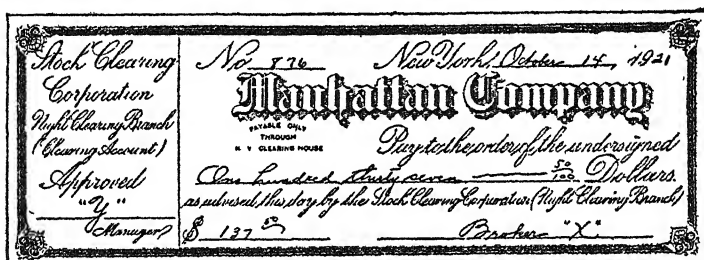 Stock Clearing
Corporation
Night Clearing Branch
(Clearing Account)
Approved
"Y"
Manager
No 876 New York, October 14, 1921
Manhattan Company
PAYABLE ONLY
THROUGH
N. Y. CLEARING HOUSE
Pay to the order of the undersigned
One hundred thirty seven 50/100 Dollars.
as advised this day by the Stock Clearing Corporation (Night Clearing Branch)
$ 137 50 Broker "X"